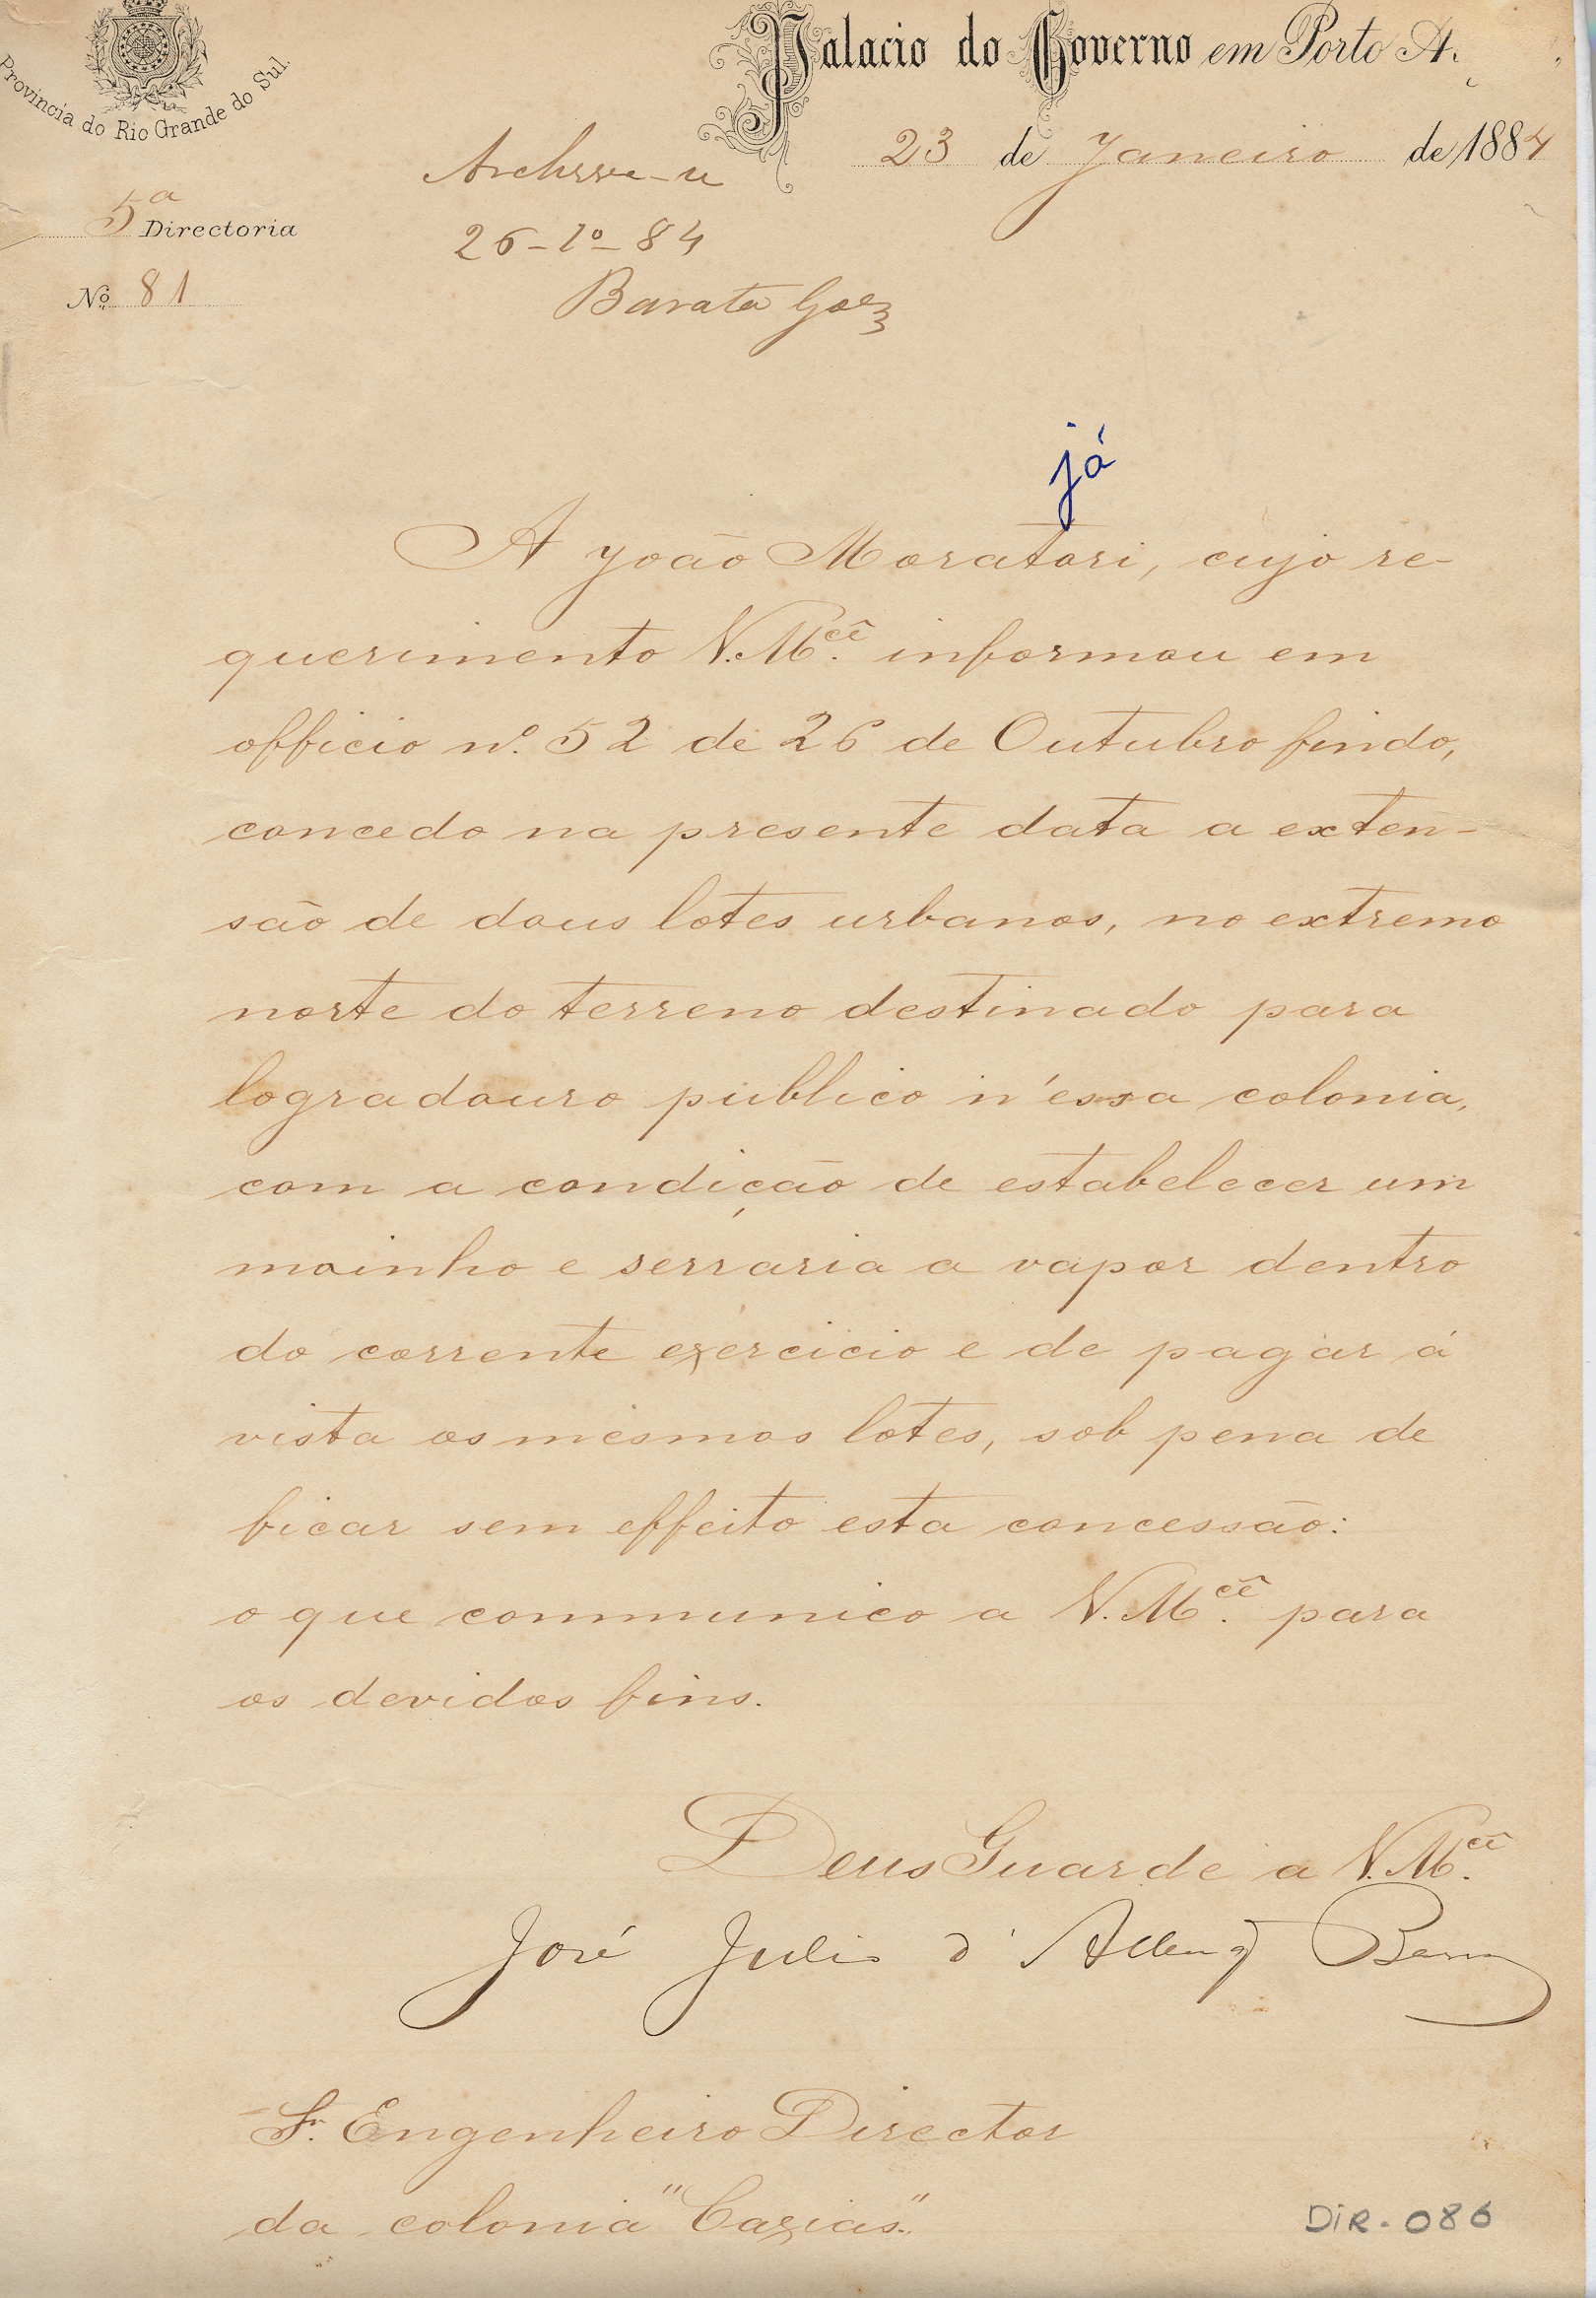 Provincia do Rio Grande do Sul.
Palacio do Governo em Porto A.
23 de Janeiro de 1884
5ª Directoria
Nº 81
Archive-se
26-1º-84
Barata Goes
já
A João Moratori, cujo re-
querimento V. M.cê informou em
officio nº. 52 de 26 de Outubro findo,
concedo na presente data a exten-
são de dous lotes urbanos, no extremo
norte do terreno destinado para
logradouro publico n'essa colonia,
com a condição de estabelecer um
moinho e serraria a vapor dentro
do corrente exercicio e de pagar á
vista os mesmos lotes, sob pena de
ficar sem effeito esta concessão:
o que communico a V. M.cê para
os devidos fins.
Deus Guarde a V. M.cê
José Julio d'Albuq Barros
Sr. Engenheiro Director
da colonia "Caxias".
DIR. 086